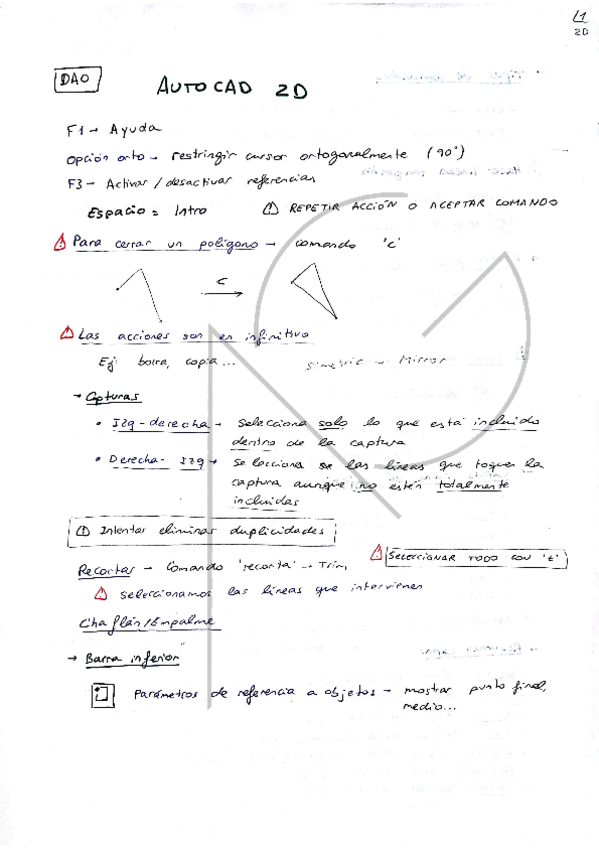 L1
2D
DAO
AUTOCAD 2D
F1 → Ayuda
Opción orto → restringir cursor ortogonalmente (90°)
F3 → Activar / desactivar referencias
Espacio = Intro
! REPETIR ACCIÓN O ACEPTAR COMANDO
! Para cerrar un polígono → comando 'c'
C
! Las acciones son en infinitivo
Ej: borra, copia...
simetria → Mirror
→ Capturas
• Izq - derecha → Selecciona solo lo que está incluido
dentro de la captura
• Derecha - Izq → Selecciona las líneas que toquen la
captura aunque no estén totalmente
incluidas
! Intentar eliminar duplicidades
Recortar → Comando 'recorta' → Trim
! SELECCIONAR TODO CON 't'
! Seleccionamos las líneas que intervienen
Chaflán / Empalme
→ Barra inferior
Parámetros de referencia a objetos → mostrar punto final,
medio...